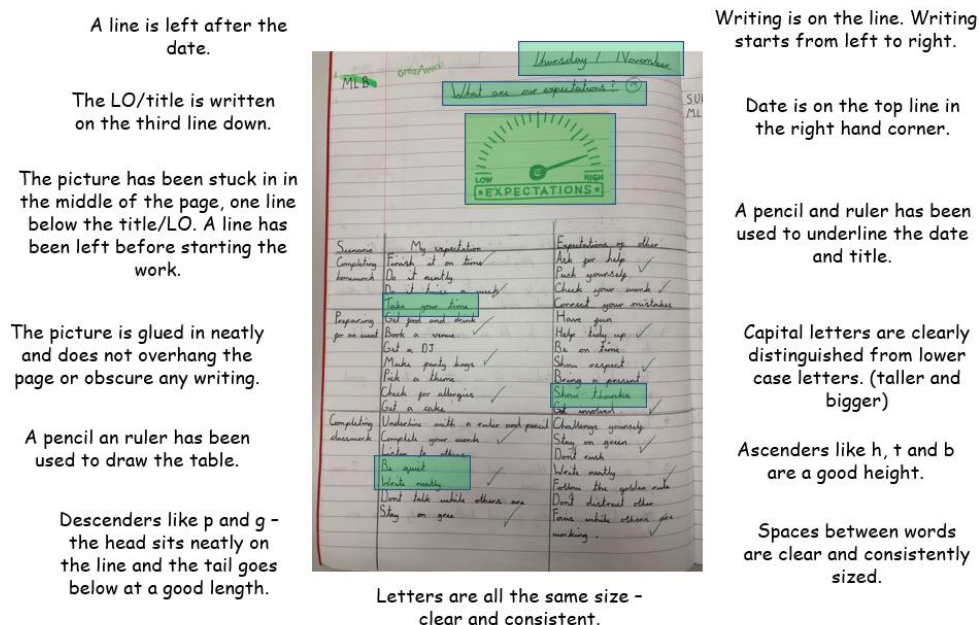 A line is left after the
date.
The LO/title is written
on the third line down.
The picture has been stuck in in
the middle of the page, one line
below the title/LO. A line has
been left before starting the
work.
The picture is glued in neatly
and does not overhang the
page or obscure any writing.
A pencil an ruler has been
used to draw the table.
Descenders like p and g –
the head sits neatly on
the line and the tail goes
below at a good length.
MLB
Thursday 1 November
What are our expectations?
LOW HIGH
EXPECTATIONS
Scenario My expectation Expectations of other
Completing Finish it on time Ask for help
homework Do it neatly Push yourself
Do it twise a week Check your work
Take your time Correct your mistakes
Preparing Get food and drink Have fun
for an event Book a venue Help tidy up
Get a DJ Be on time
Make party bags Show respect
Pick a theme Bring a present
Check for allergies Show thanks
Get a cake Get involved
Completing Underline with a ruler and pencil Challenge yourself
classwork Complete your work Stay on green
Listen to others Don't rush
Be quiet Write neatly
Write neatly Follow the golden rule
Dont talk while others are Don't distract other
Stay on gree Focus while others are
working.
SU
ML
Letters are all the same size –
clear and consistent.
Writing is on the line. Writing
starts from left to right.
Date is on the top line in
the right hand corner.
A pencil and ruler has been
used to underline the date
and title.
Capital letters are clearly
distinguished from lower
case letters. (taller and
bigger)
Ascenders like h, t and b
are a good height.
Spaces between words
are clear and consistently
sized.